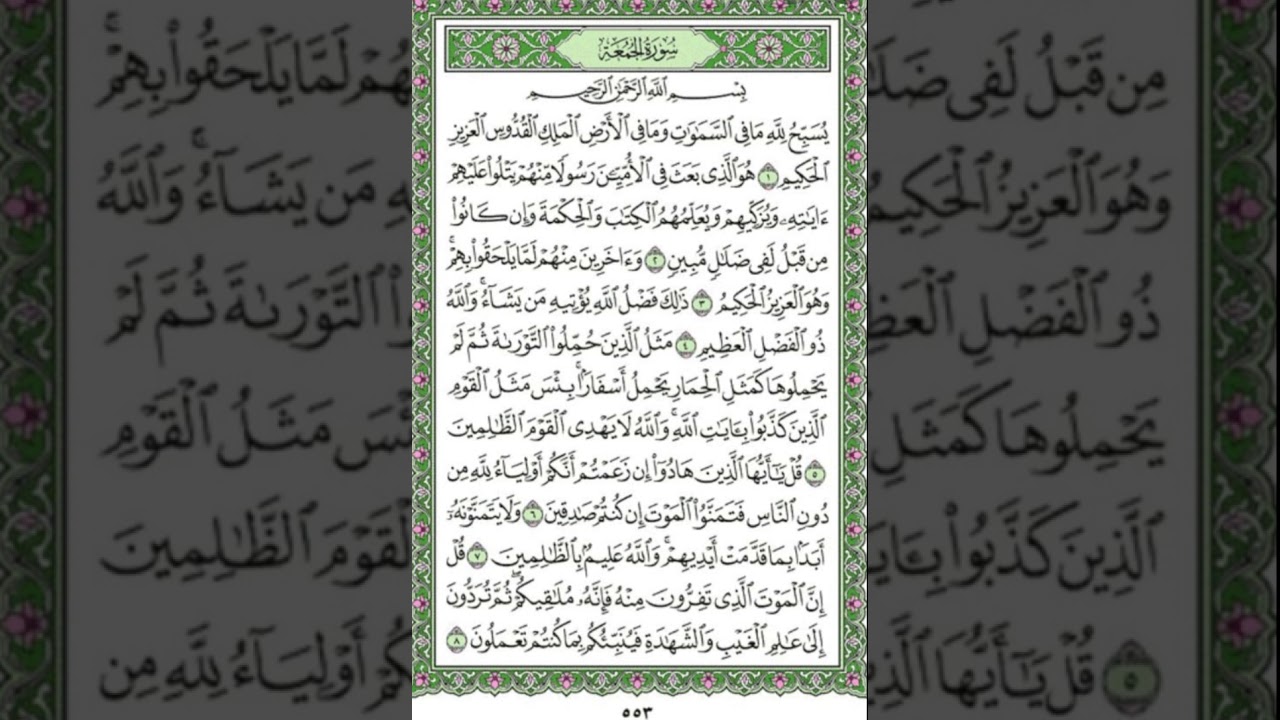 سُورَةُ الجُمُعَةِ
بِسْمِ ٱللَّهِ ٱلرَّحْمَٰنِ ٱلرَّحِيمِ
يُسَبِّحُ لِلَّهِ مَا فِى ٱلسَّمَٰوَٰتِ وَمَا فِى ٱلْأَرْضِ ٱلْمَلِكِ ٱلْقُدُّوسِ ٱلْعَزِيزِ
ٱلْحَكِيمِ ١ هُوَ ٱلَّذِى بَعَثَ فِى ٱلْأُمِّيِّـۧنَ رَسُولًا مِّنْهُمْ يَتْلُوا۟ عَلَيْهِمْ
ءَايَٰتِهِۦ وَيُزَكِّيهِمْ وَيُعَلِّمُهُمُ ٱلْكِتَٰبَ وَٱلْحِكْمَةَ وَإِن كَانُوا۟
مِن قَبْلُ لَفِى ضَلَٰلٍ مُّبِينٍ ٢ وَءَاخَرِينَ مِنْهُمْ لَمَّا يَلْحَقُوا۟ بِهِمْ ۚ
وَهُوَ ٱلْعَزِيزُ ٱلْحَكِيمُ ٣ ذَٰلِكَ فَضْلُ ٱللَّهِ يُؤْتِيهِ مَن يَشَآءُ ۚ وَٱللَّهُ
ذُو ٱلْفَضْلِ ٱلْعَظِيمِ ٤ مَثَلُ ٱلَّذِينَ حُمِّلُوا۟ ٱلتَّوْرَىٰةَ ثُمَّ لَمْ
يَحْمِلُوهَا كَمَثَلِ ٱلْحِمَارِ يَحْمِلُ أَسْفَارًۢا ۚ بِئْسَ مَثَلُ ٱلْقَوْمِ
ٱلَّذِينَ كَذَّبُوا۟ بِـَٔايَٰتِ ٱللَّهِ ۚ وَٱللَّهُ لَا يَهْدِى ٱلْقَوْمَ ٱلظَّٰلِمِينَ
٥ قُلْ يَٰٓأَيُّهَا ٱلَّذِينَ هَادُوٓا۟ إِن زَعَمْتُمْ أَنَّكُمْ أَوْلِيَآءُ لِلَّهِ مِن
دُونِ ٱلنَّاسِ فَتَمَنَّوُا۟ ٱلْمَوْتَ إِن كُنتُمْ صَٰدِقِينَ ٦ وَلَا يَتَمَنَّوْنَهُۥٓ
أَبَدًۢا بِمَا قَدَّمَتْ أَيْدِيهِمْ ۚ وَٱللَّهُ عَلِيمٌۢ بِٱلظَّٰلِمِينَ ٧ قُلْ
إِنَّ ٱلْمَوْتَ ٱلَّذِى تَفِرُّونَ مِنْهُ فَإِنَّهُۥ مُلَٰقِيكُمْ ۖ ثُمَّ تُرَدُّونَ
إِلَىٰ عَٰلِمِ ٱلْغَيْبِ وَٱلشَّهَٰدَةِ فَيُنَبِّئُكُم بِمَا كُنتُمْ تَعْمَلُونَ ٨
٥٥٣